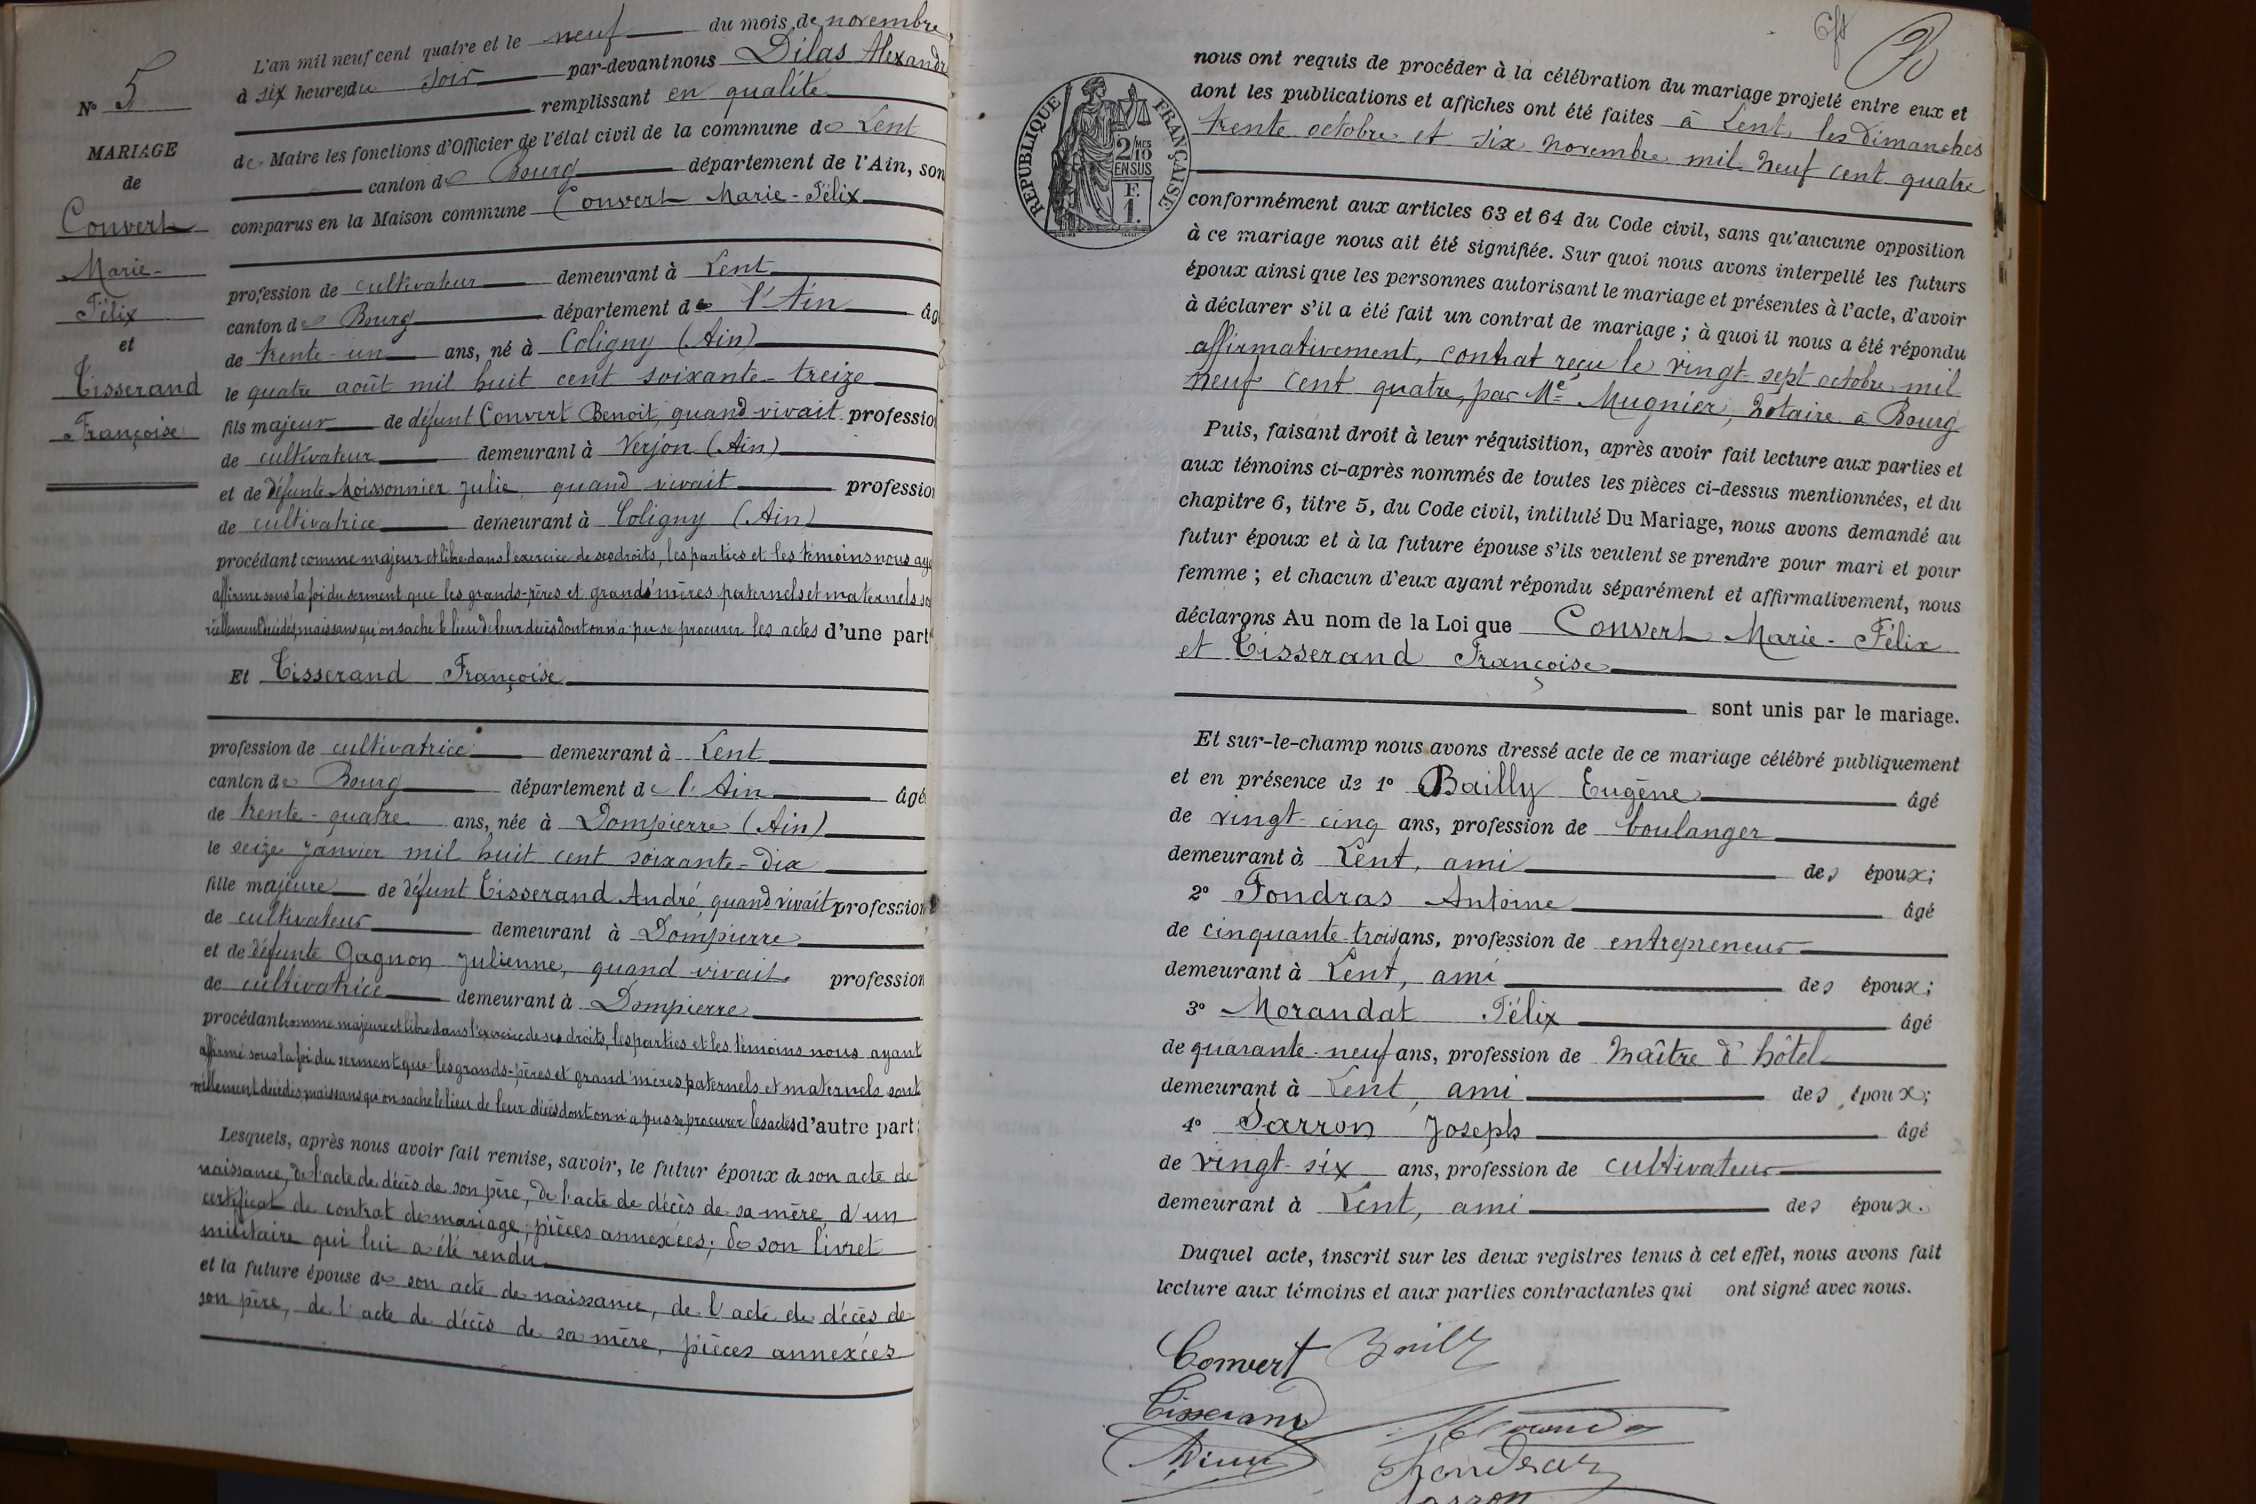 L'an mil neuf cent quatre et le neuf du mois de novembre,
à six heures du soir par-devant nous Dilas Alexandre
remplissant en qualité
de Maire les fonctions d'Officier de l'état civil de la commune de Lent
canton de Bourg département de l'Ain, son
comparus en la Maison commune Convert Marie-Félix
profession de cultivateur demeurant à Lent
canton de Bourg département de l'Ain âg
de trente-un ans, né à Coligny (Ain)
le quatre août mil huit cent soixante-treize
fils majeur de défunt Convert Benoit, quand vivait profession
de cultivateur demeurant à Verjon (Ain)
et de défunte Moissonnier Julie, quand vivait profession
de cultivatrice demeurant à Coligny (Ain)
procédant comme majeur et libre dans l'exercice de ses droits, les parties et les témoins nous aya
affirmé sous la foi du serment que les grands-pères et grands'mères paternels et maternels so
réellement décédés, mais sans qu'on sache le lieu de leur décès dont on n'a pu se procurer les actes d'une part
Et Tisserand Françoise
profession de cultivatrice demeurant à Lent
canton de Bourg département de l'Ain âgé
de trente-quatre ans, née à Dompierre (Ain)
le seize janvier mil huit cent soixante-dix
fille majeure de défunt Tisserand André, quand vivait profession
de cultivateur demeurant à Dompierre
et de défunte Gagnon Julienne, quand vivait profession
de cultivatrice demeurant à Dompierre
procédant comme majeure et libre dans l'exercice de ses droits, les parties et les témoins nous ayant
affirmé sous la foi du serment que les grands-pères et grand'mères paternels et maternels sont
réellement décédés, mais sans qu'on sache le lieu de leur décès dont on n'a pu se procurer les actes d'autre part;
Lesquels, après nous avoir fait remise, savoir, le futur époux de son acte de
naissance, de l'acte de décès de son père, de l'acte de décès de sa mère, d'un
certificat de contrat de mariage, pièces annexées; de son livret
militaire qui lui a été rendu
et la future épouse de son acte de naissance, de l'acte de décès de
son père, de l'acte de décès de sa mère, pièces annexées
N° 5
MARIAGE
de
Convert
Marie-
Félix
et
Tisserand
Françoise
nous ont requis de procéder à la célébration du mariage projeté entre eux et
dont les publications et affiches ont été faites à Lent, les dimanches
trente octobre et six novembre mil neuf cent quatre
RÉPUBLIQUE FRANÇAISE
2/10 MES
EN SUS
F.
1.
conformément aux articles 63 et 64 du Code civil, sans qu'aucune opposition
à ce mariage nous ait été signifiée. Sur quoi nous avons interpellé les futurs
époux ainsi que les personnes autorisant le mariage et présentes à l'acte, d'avoir
à déclarer s'il a été fait un contrat de mariage; à quoi il nous a été répondu
affirmativement, contrat reçu le vingt-sept octobre mil
neuf cent quatre, par Me Mugnier, notaire à Bourg
Puis, faisant droit à leur réquisition, après avoir fait lecture aux parties et
aux témoins ci-après nommés de toutes les pièces ci-dessus mentionnées, et du
chapitre 6, titre 5, du Code civil, intitulé Du Mariage, nous avons demandé au
futur époux et à la future épouse s'ils veulent se prendre pour mari et pour
femme; et chacun d'eux ayant répondu séparément et affirmativement, nous
déclarons Au nom de la Loi que Convert Marie-Félix
et Tisserand Françoise
sont unis par le mariage.
Et sur-le-champ nous avons dressé acte de ce mariage célébré publiquement
et en présence de 1° Bailly Eugène âgé
de vingt-cinq ans, profession de boulanger
demeurant à Lent, ami des époux;
2° Fondras Antoine âgé
de cinquante-trois ans, profession de entrepreneur
demeurant à Lent, ami des époux;
3° Morandat Félix âgé
de quarante-neuf ans, profession de Maître d'hôtel
demeurant à Lent, ami des époux;
4° Sarron Joseph âgé
de vingt-six ans, profession de cultivateur
demeurant à Lent, ami des époux.
Duquel acte, inscrit sur les deux registres tenus à cet effet, nous avons fait
lecture aux témoins et aux parties contractantes qui ont signé avec nous.
Convert Bailly
Tisserand
Fondras
Sarron